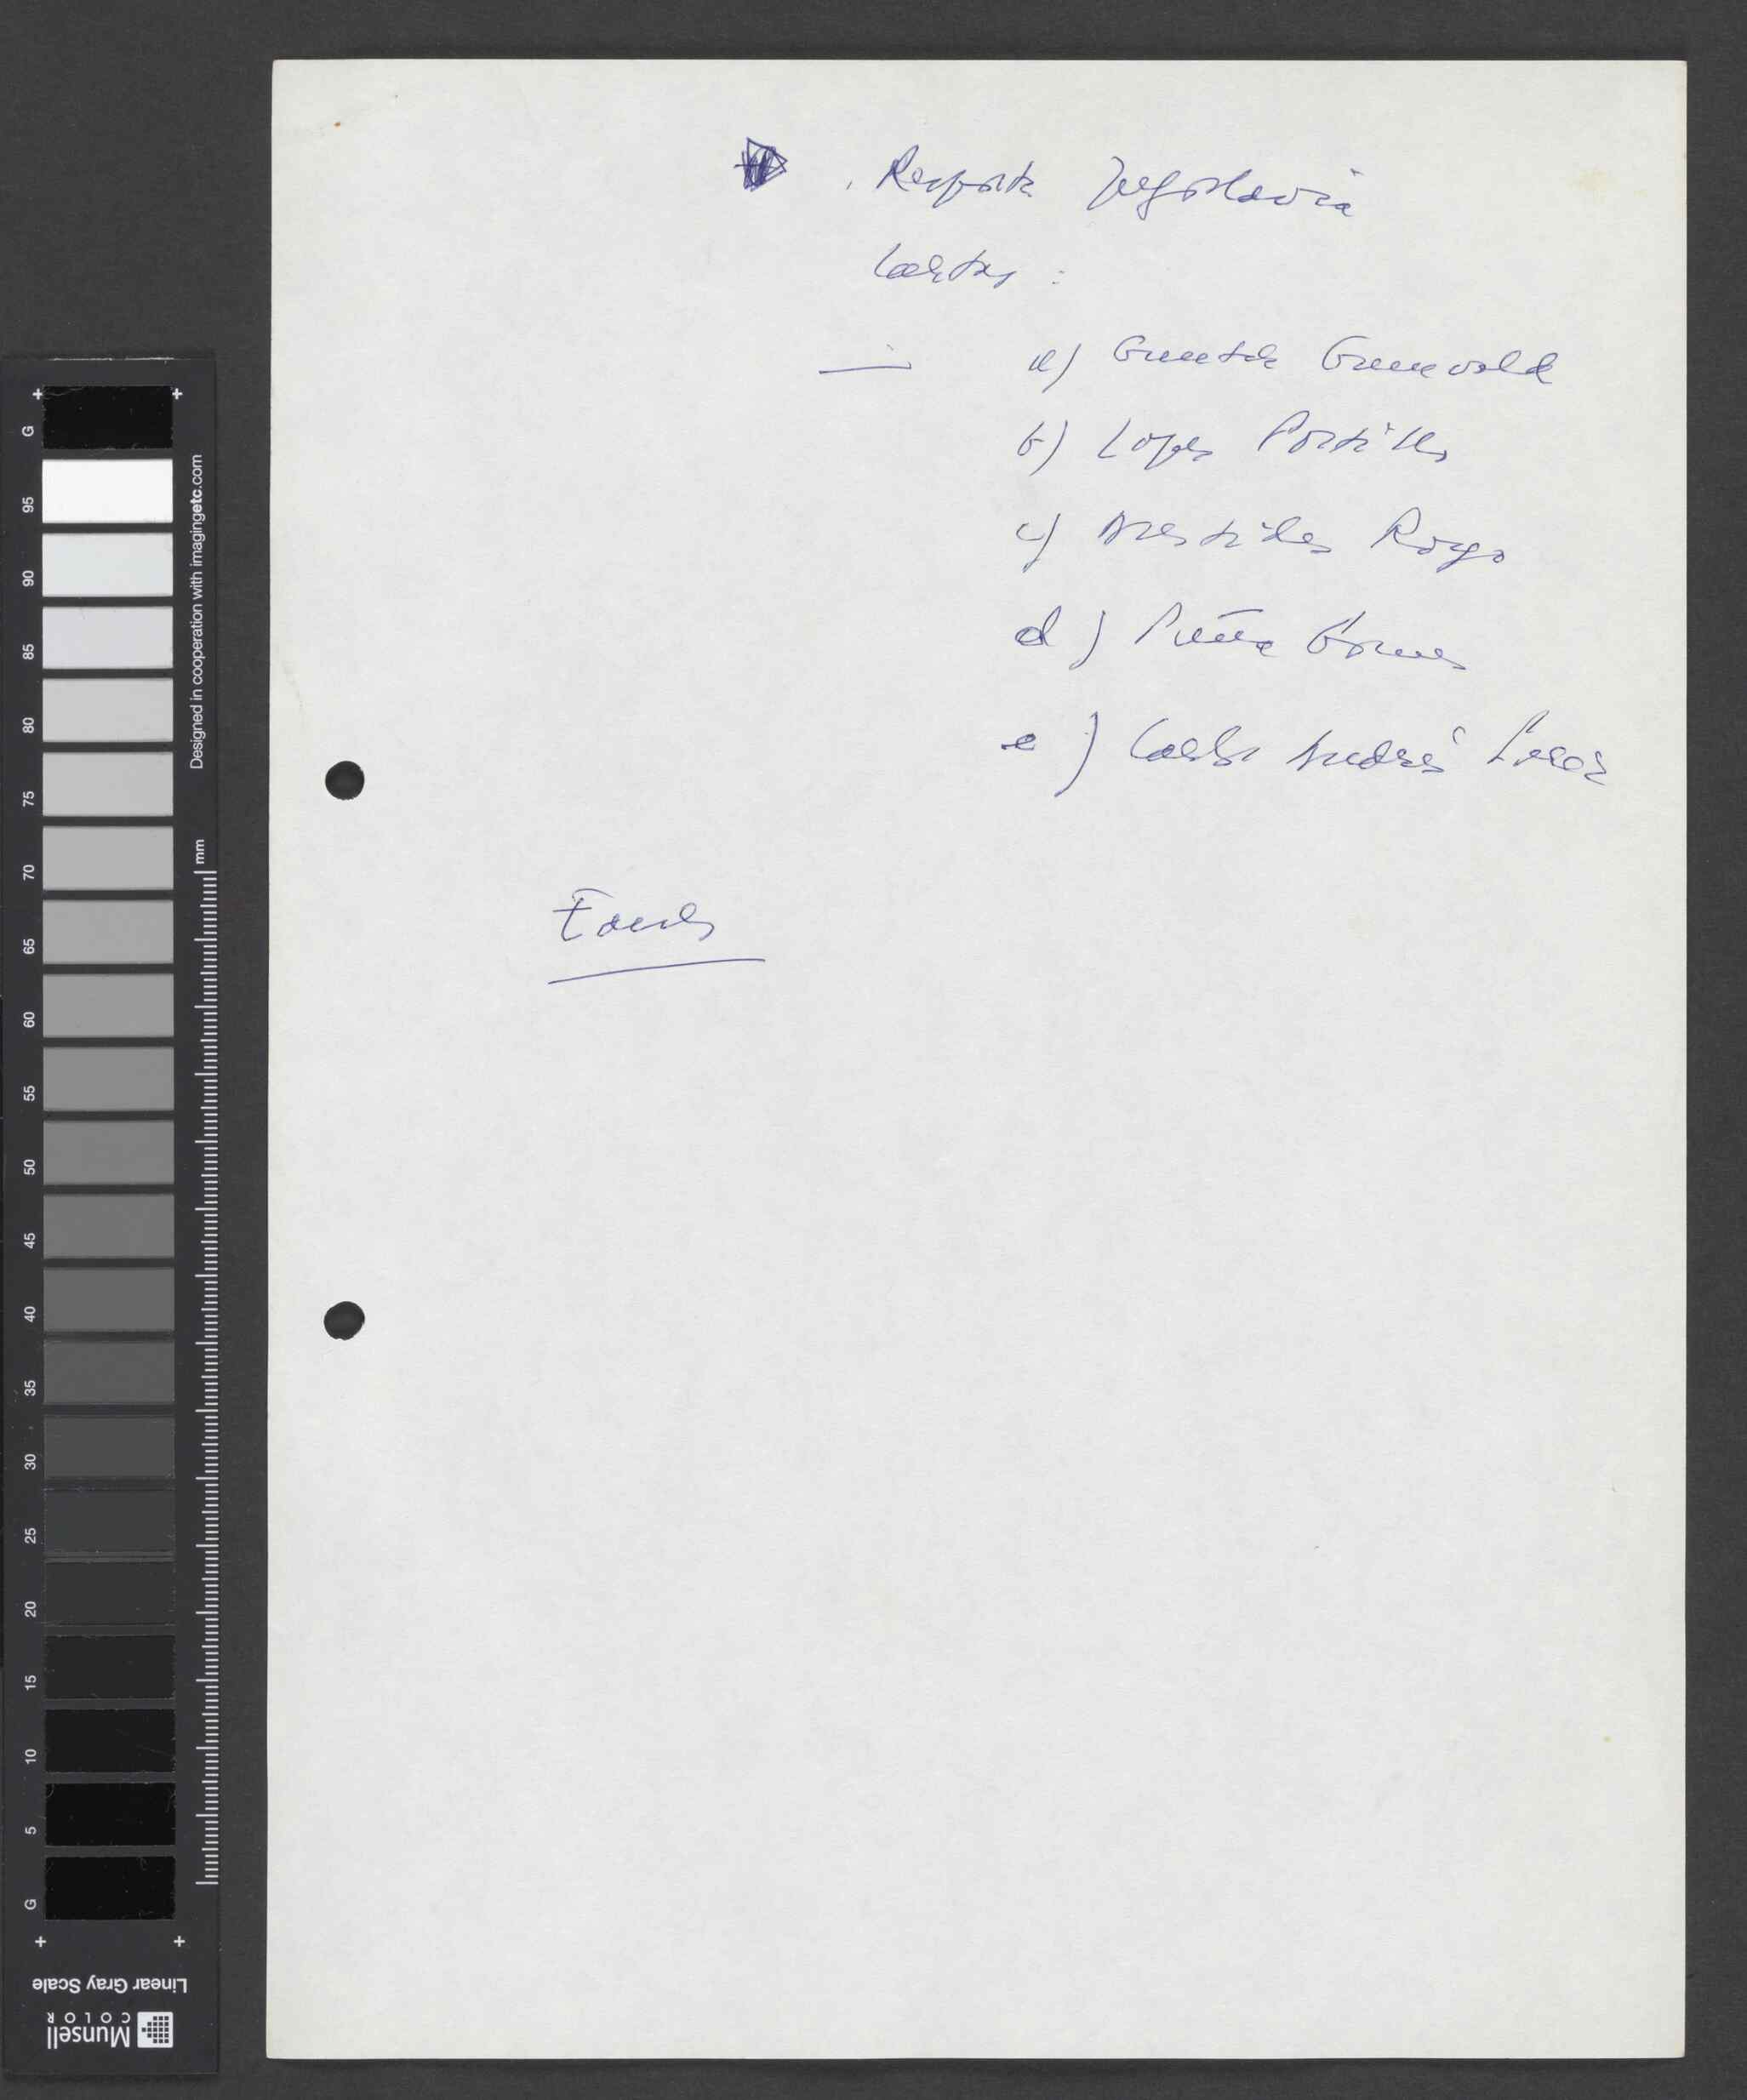 . Resposta Jugoslavia
Cartas :
a) Gunter Grunwald
b) Lopes Portillo
c) Aristides Royo
d) Peña Gomes
e) Carlos Andrés Perez
G 95 90 85 80 75 70 65 60 55 50 45 40 35 30 25 20 15 10 5 G
Designed in cooperation with imagingetc.com
mm
Linear Gray Scale
Munsell
COLOR